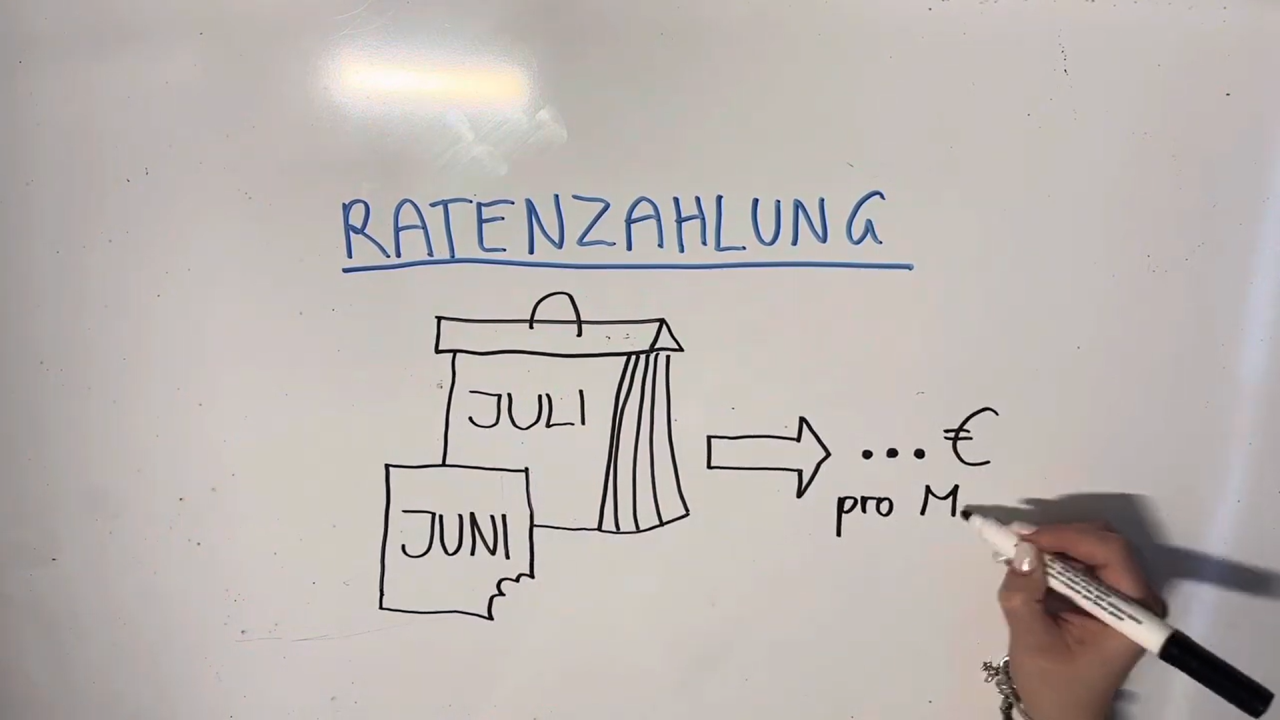 RATENZAHLUNG
JULI
JUNI
... €
pro M